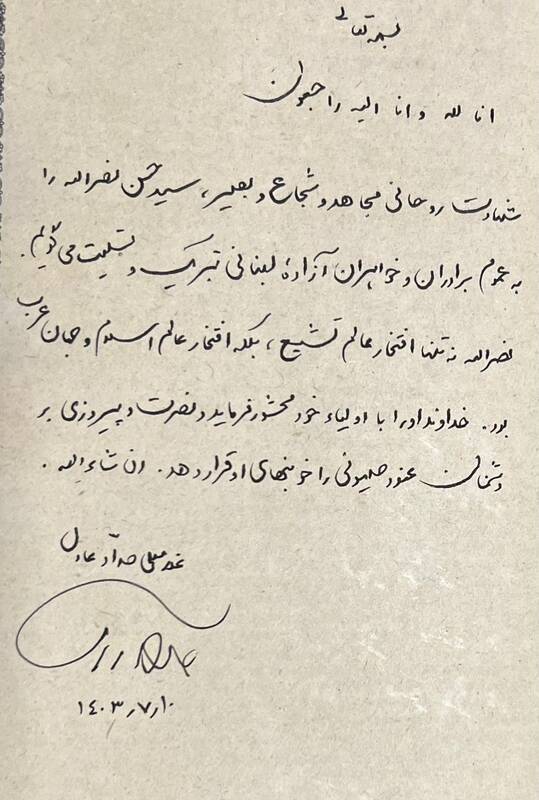 بسمه تعالی
انا لله و انا الیه راجعون
شهادت روحانی مجاهد و شجاع و بصیر، سید حسن نصرالله را
به عموم برادران و خواهران آزادهٔ لبنانی تبریک و تسلیت می‌گویم.
نصرالله نه تنها افتخار عالم تشیع، بلکه افتخار عالم اسلام و جهان عرب
بود. خداوند او را با اولیاء خود محشور فرماید و نصرت و پیروزی بر
دشمنان عنود صهیونی را خونبهای او قرار دهد. ان شاءالله.
غلامعلی حدّاد عادل
۱۴۰۳٫۷٫۱۰